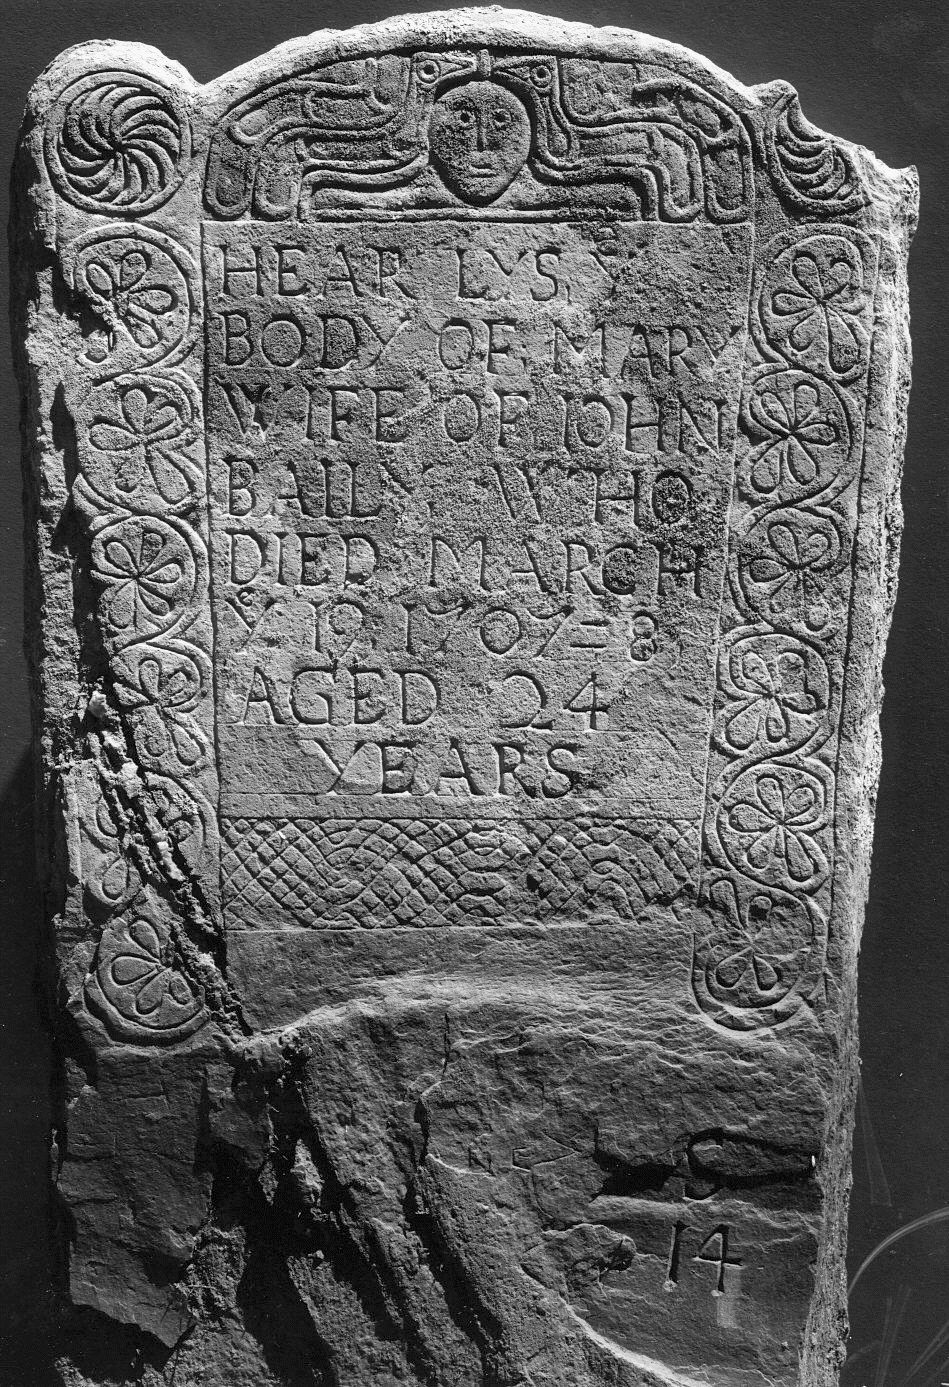 HEAR LYS Yᵉ
BODY OF MARY
WIFE OF IOHN
BAILY WHO
DIED MARCH
Yᵉ 19 1707=8
AGED 24
YEARS
14